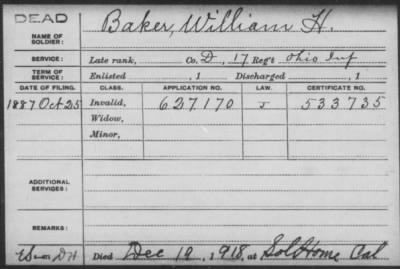 DEAD
Baker, William H.
NAME OF SOLDIER:
SERVICE: Late rank, Co. D, 17 Reg't Ohio Inf
TERM OF SERVICE: Enlisted , 1 Discharged , 1
DATE OF FILING. CLASS. APPLICATION NO. LAW. CERTIFICATE NO.
1887 Oct 25 Invalid, 627170 J 533735
Widow,
Minor,
ADDITIONAL SERVICES:
REMARKS:
Died Dec 12, 1918, at Sol Home Cal